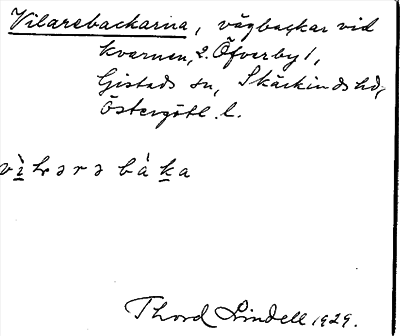 Vilarebackarna, vägbackar vid
kvarnen, 2. Öfverby 1,
Gistads sn, Skärkinds hd,
Östergötl. l.
vìlərəbàka
Thord Lindell 1929.